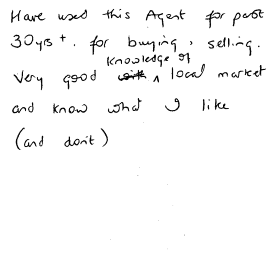 Have used this Agent for past
30yrs +. for buying, selling.
Very good knowledge of local market
and know what I like
(and don't)